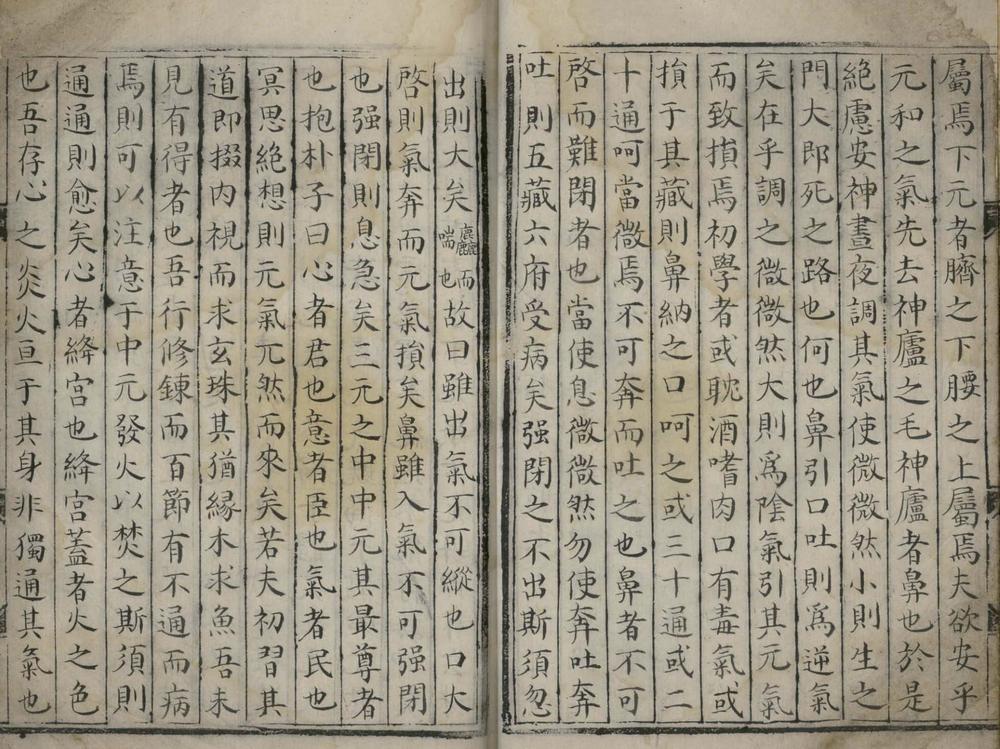 屬焉下元者臍之下腰之上屬焉夫欲安乎
元和之氣先去神廬之毛神廬者鼻也於是
絶慮安神晝夜調其氣使微微然小則生之
門大即死之路也何也鼻引口吐則爲逆氣
矣在乎調之微微然大則爲陰氣引其元氣
而致損焉初學者或耽酒嗜肉口有毒氣或
損于其藏則鼻納之口呵之或三十通或二
十通呵當微焉不可奔而吐之也鼻者不可
啓而難閉者也當使息微微然勿使奔吐奔
吐則五藏六府受病矣强閉之不出斯須忽
出則大矣麤而喘也故曰雖出氣不可縱也口大
啓則氣奔而元氣損矣鼻雖入氣不可强閉
也强閉則息急矣三元之中中元其最尊者
也抱朴子曰心者君也意者臣也氣者民也
冥思絶想則元氣兀然而來矣若夫初習其
道即掇内視而求玄珠其猶縁木求魚吾未
見有得者也吾行修鍊而百節有不通而病
焉則可以注意于中元發火以焚之斯須則
通通則愈矣心者絳宫也絳宫蓋者火之色
也吾存心之炎火亘于其身非獨通其氣也